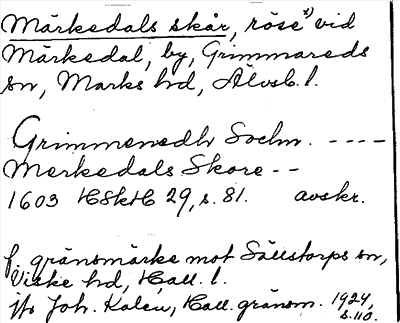 Märkedals skår, röse x) vid
Märkedal, by, Grimmareds
sn, Marks hd, Älvsb. l.
Grimmeredh Sochn. ----
Merkedals Skore --
1603 HSkH 29, s. 81. avskr.
f. gränsmärke mot Sällstorps sn,
Viske hd, Hall. l.
jfr Joh. Kalén, Hall. gränsm. 1924,
s. 110.